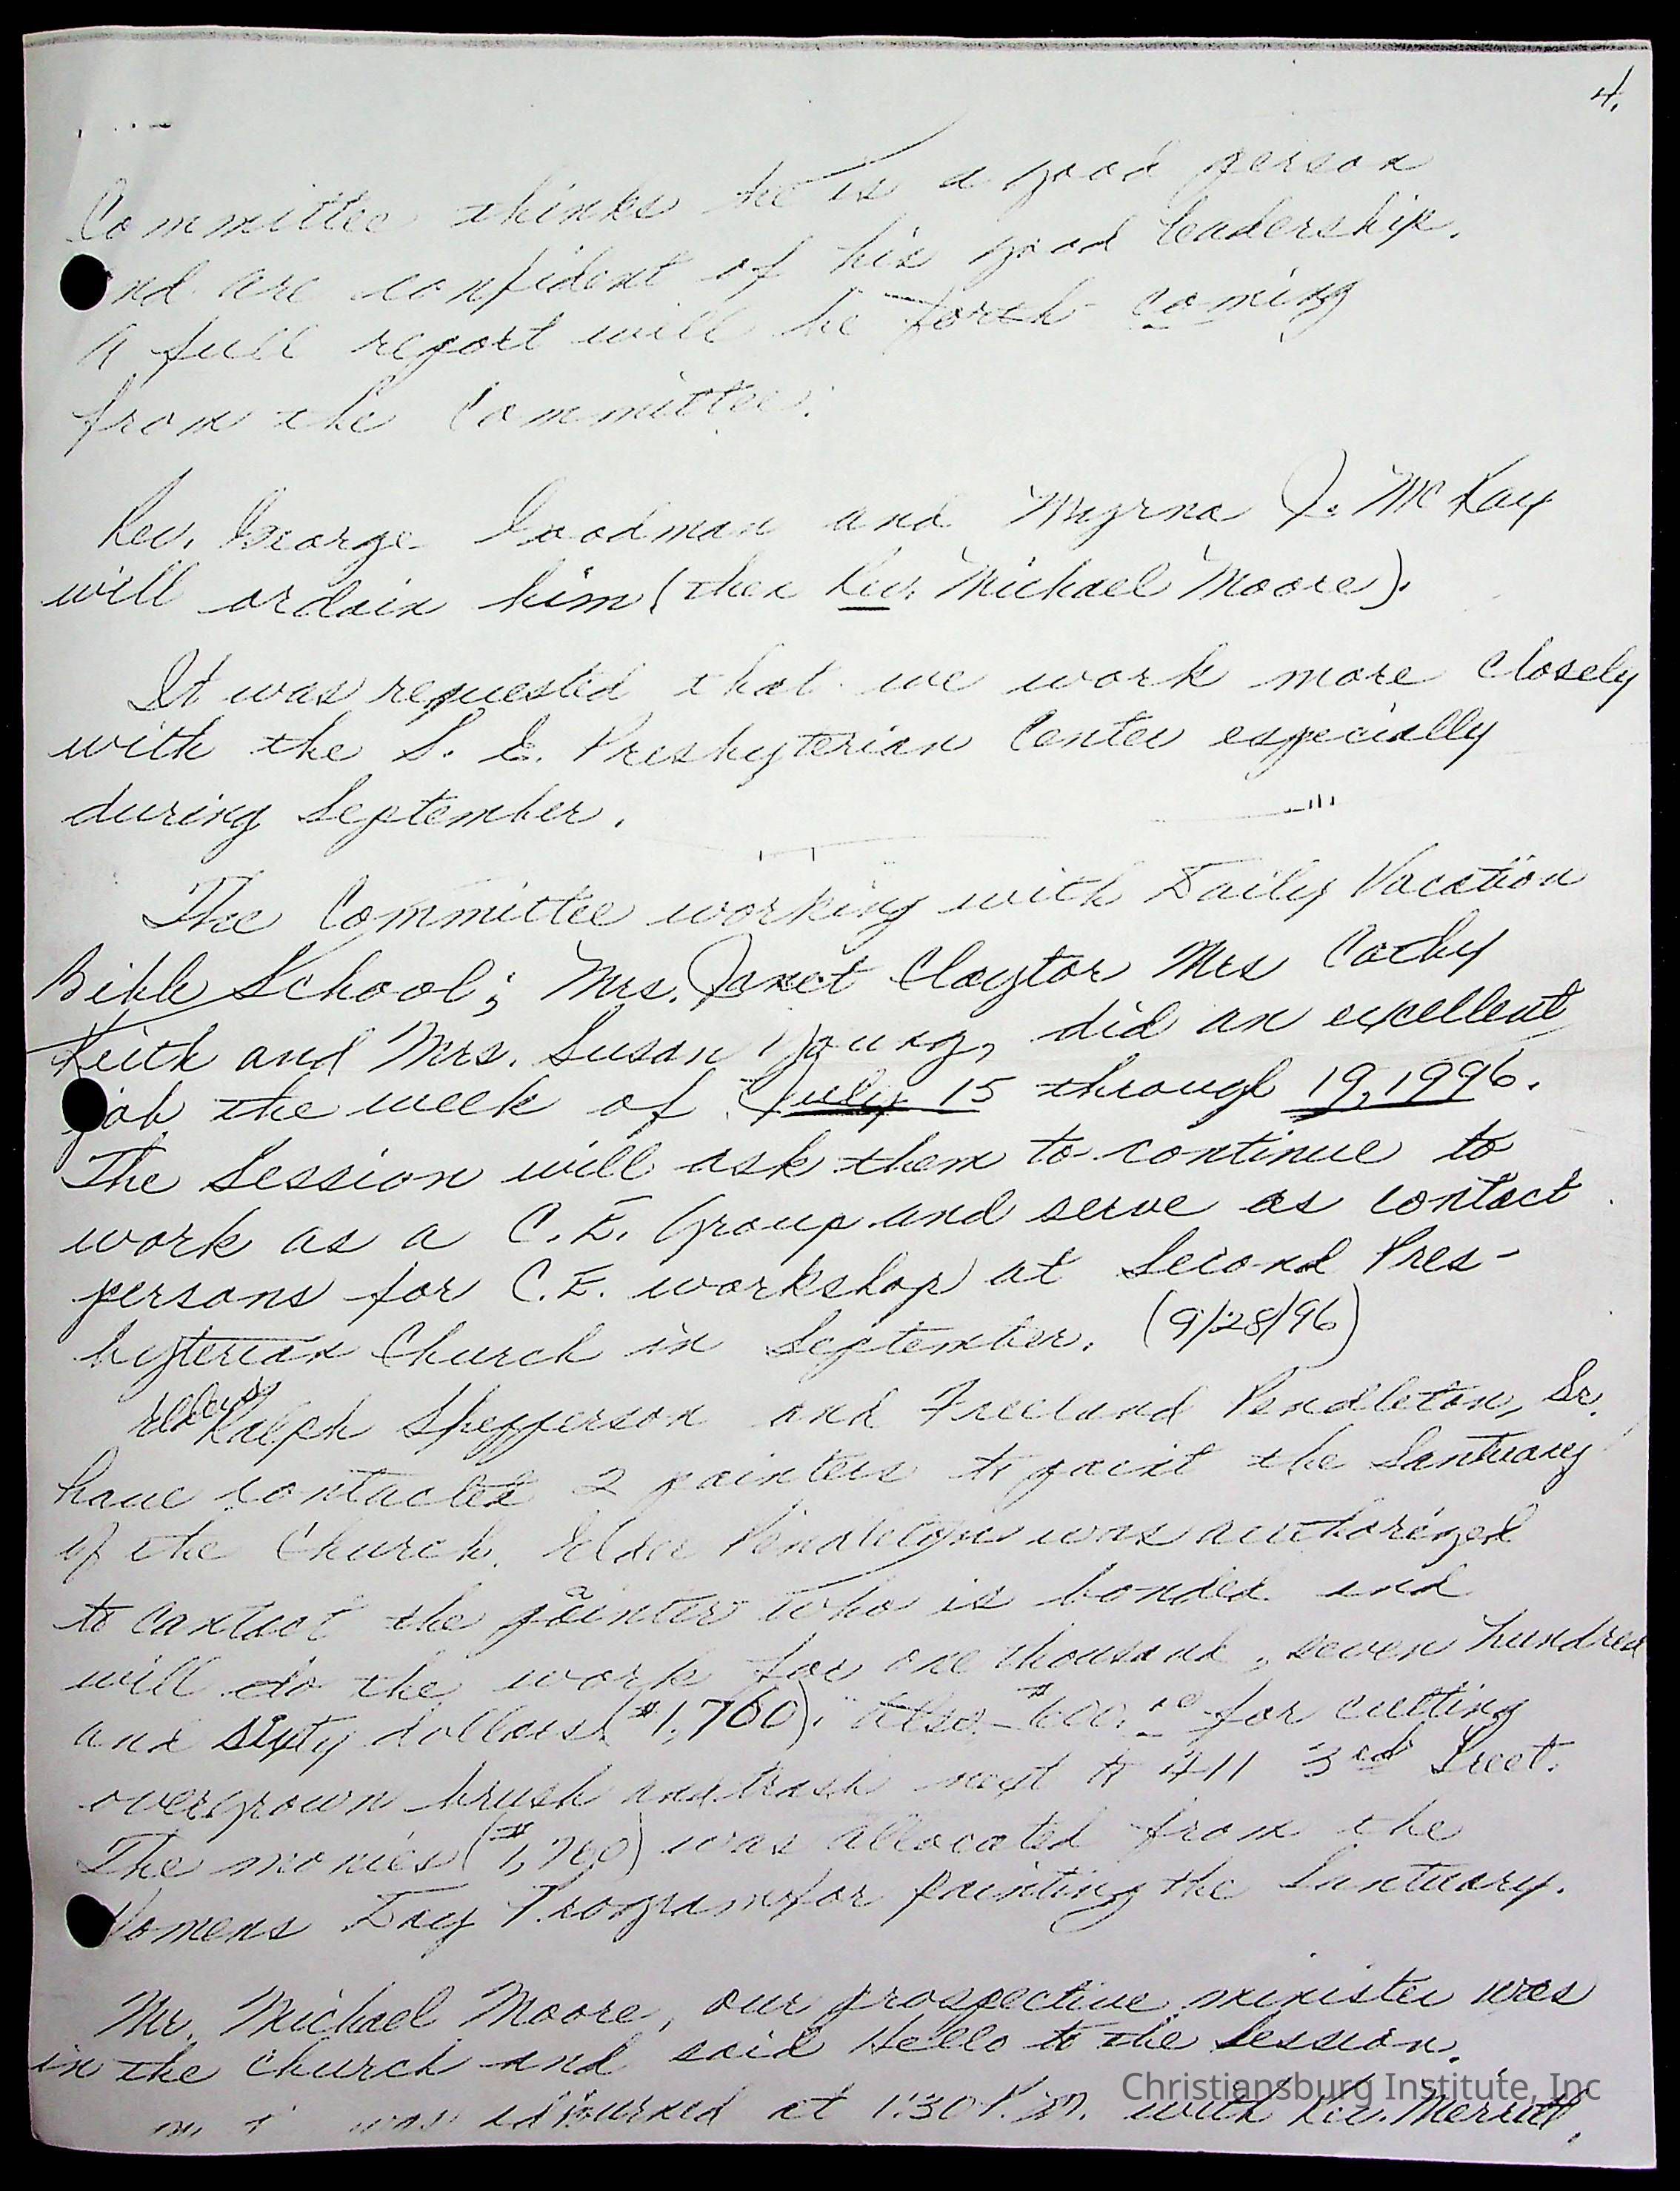 4.
Committee thinks he is a good person
and are confident of his good leadership.
A full report will be forth coming
from the Committee.
Rev. George Goodman and Myrna J. McKay
will ordain him (then Rev. Michael Moore).
It was requested that we work more closely
with the S. E. Presbyterian Center especially
during September.
The Committee working with Daily Vacation
Bible School; Mrs. Janet Claytor Mrs Cathy
Keith and Mrs. Susan Young, did an excellent
job the week of July 15 through 19, 1996.
The Session will ask them to continue to
work as a C.E. Group and serve as contact
persons for C.E. workshop at Second Pres-
byterian Church in September. (9/28/96)
Elders Ralph Shepperson and Freeland Pendleton, Sr.
have contacted 2 painters to paint the Santuary
of the Church. Elder Pendleton was authorized
to contact the painter who is bonded and
will do the work for one thousand, seven hundred
and sixty dollars ($1,760). Also $600.00 for cutting
overgrown brush and trash next to 411 3rd Sreet.
The monies ($1,760) was allocated from the
Womens Day Program for painting the Santuary.
Mr. Michael Moore, our prospective minister was
in the church and said Hello to the Session.
was adjourned at 1:30 P.M. with Rev. Merritt.
Christiansburg Institute, Inc